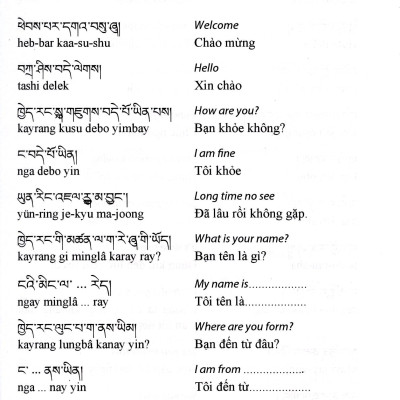 ཕེབས་པར་དགའ་བསུ་ཞུ། Welcome
heb-bar kaa-su-shu Chào mừng
བཀྲ་ཤིས་བདེ་ལེགས། Hello
tashi delek Xin chào
ཁྱེད་རང་སྐུ་གཟུགས་བདེ་པོ་ཡིན་པས། How are you?
kayrang kusu debo yimbay Bạn khỏe không?
ང་བདེ་པོ་ཡིན། I am fine
nga debo yin Tôi khỏe
ཡུན་རིང་འཇལ་རྒྱུ་མ་བྱུང་། Long time no see
yün-ring je-kyu ma-joong Đã lâu rồi không gặp.
ཁྱེད་རང་གི་མཚན་ལ་ག་རེ་ཞུ་གི་ཡོད། What is your name?
kayrang gi minglâ karay ray? Bạn tên là gì?
ངའི་མིང་ལ་ ... རེད། My name is..................
ngay minglâ ... ray Tôi tên là...................
ཁྱེད་རང་ལུང་པ་ག་ནས་ཡིམ། Where are you form?
kayrang lungbâ kanay yin? Bạn đến từ đâu?
ང་ ... ནས་ཡིན། I am from ...................
nga ... nay yin Tôi đến từ...................